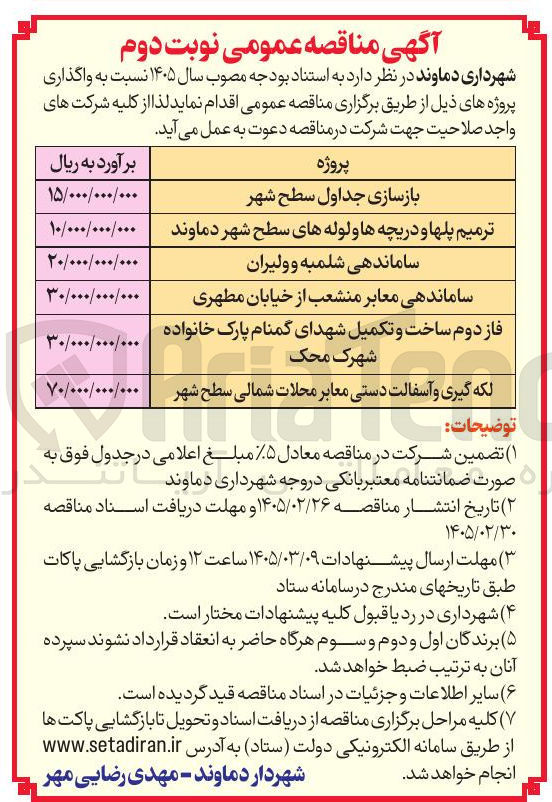 آگهی مناقصه عمومی نوبت دوم
شهرداری دماوند در نظر دارد به استناد بودجه مصوب سال ۱۴۰۵ نسبت به واگذاری
پروژه های ذیل از طریق برگزاری مناقصه عمومی اقدام نماید لذا از کلیه شرکت های
واجد صلاحیت جهت شرکت در مناقصه دعوت به عمل می آید.
پروژه برآورد به ریال
بازسازی جداول سطح شهر ۱۵/۰۰۰/۰۰۰/۰۰۰
ترمیم پلها و دریچه ها و لوله های سطح شهر دماوند ۱۰/۰۰۰/۰۰۰/۰۰۰
ساماندهی شلمبه و ولیران ۲۰/۰۰۰/۰۰۰/۰۰۰
ساماندهی معابر منشعب از خیابان مطهری ۳۰/۰۰۰/۰۰۰/۰۰۰
فاز دوم ساخت و تکمیل شهدای گمنام پارک خانواده
شهرک محک ۳۰/۰۰۰/۰۰۰/۰۰۰
لکه گیری و آسفالت دستی معابر محلات شمالی سطح شهر ۷۰/۰۰۰/۰۰۰/۰۰۰
توضیحات:
۱) تضمین شرکت در مناقصه معادل ۵٪ مبلغ اعلامی در جدول فوق به
صورت ضمانتنامه معتبر بانکی در وجه شهرداری دماوند
۲) تاریخ انتشار مناقصه ۱۴۰۵/۰۲/۲۶ و مهلت دریافت اسناد مناقصه
۱۴۰۵/۰۲/۳۰
۳) مهلت ارسال پیشنهادات ۱۴۰۵/۰۳/۰۹ ساعت ۱۲ و زمان بازگشایی پاکات
طبق تاریخهای مندرج در سامانه ستاد
۴) شهرداری در رد یا قبول کلیه پیشنهادات مختار است.
۵) برندگان اول و دوم و سوم هرگاه حاضر به انعقاد قرارداد نشوند سپرده
آنان به ترتیب ضبط خواهد شد.
۶) سایر اطلاعات و جزئیات در اسناد مناقصه قید گردیده است.
۷) کلیه مراحل برگزاری مناقصه از دریافت اسناد و تحویل تا بازگشایی پاکت ها
از طریق سامانه الکترونیکی دولت (ستاد) به آدرس www.setadiran.ir
انجام خواهد شد. شهردار دماوند - مهدی رضایی مهر